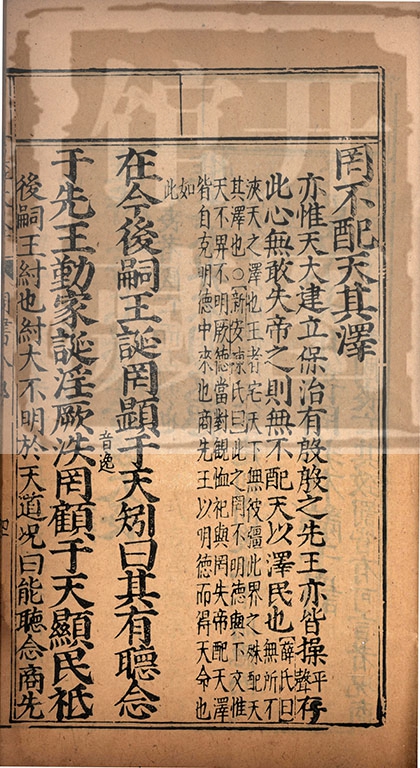 罔不配天其澤
亦惟天大建立保治有殷殷之先王亦皆操平聲存
此心無敢失帝之則無不配天以澤民也薛氏曰無所不
浹天之澤也王者宅天下無彼疆此界之殊配天
其澤也○新安陳氏曰此之罔不明德與下文惟
天不畀不明厥德當對觀恤祀與罔失帝配天澤
皆自克明德中來也商先王以明德而得天命也
如此
在今後嗣王誕罔顯于天矧曰其有聽念
于先王勤家誕淫厥泆音逸罔顧于天顯民祗
後嗣王紂也紂大不明於天道况曰能聽念商先